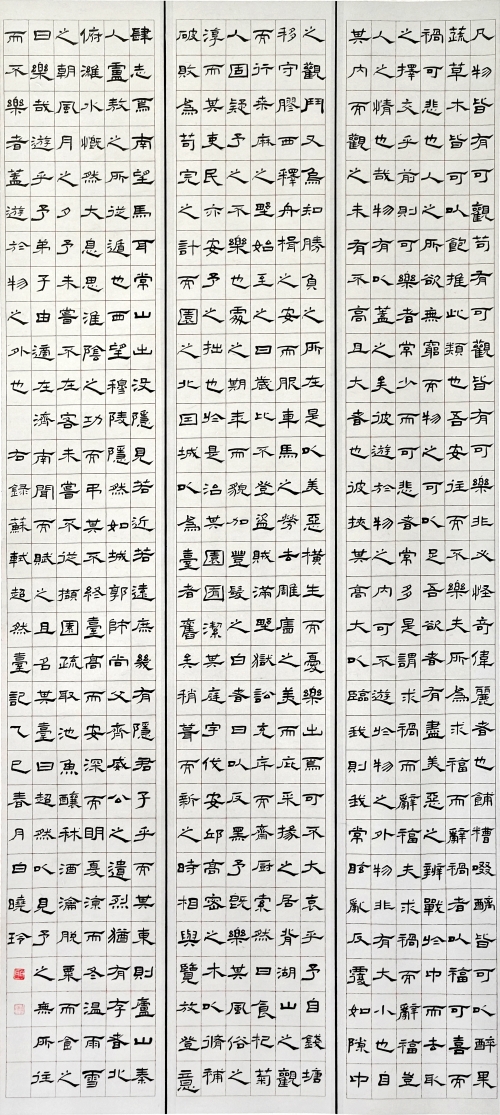 凡物皆有可觀苟有可觀皆有可樂非必怪奇偉麗者也餔糟啜醨皆可以醉果
蔬草木皆可以飽推此類也吾安往而不樂夫所為求福而辭禍者以福可喜而
禍可悲也人之所欲無窮而物之可以足吾欲者有盡美惡之辨戰於中而去取
之擇交乎前則可樂者常少而可悲者常多是謂求禍而辭福夫求禍而辭福豈
人之情也哉物有以蓋之矣彼遊於物之內而不遊於物之外物非有大小也自
其內而觀之未有不高且大者也彼挾其高大以臨我則我常眩亂反覆如隙中
之觀鬥又烏知勝負之所在是以美惡橫生而憂樂出焉可不大哀乎予自錢塘
移守膠西釋舟楫之安而服車馬之勞去雕牆之美而庇采椽之居背湖山之觀
而行桑麻之野始至之日歲比不登盜賊滿野獄訟充斥而齋廚索然日食杞菊
人固疑予之不樂也處之期年而貌加豐髮之白者日以反黑予既樂其風俗之
淳而其吏民亦安予之拙也於是治其園囿潔其庭宇伐安邱高密之木以修補
破敗為苟完之計而園之北因城以為臺者舊矣稍葺而新之時相與覽放登意
肆志焉南望馬耳常山出沒隱見若近若遠庶幾有隱君子乎而其東則盧山秦
人盧敖之所從遁也西望穆陵隱然如城郭師尚父齊威公之遺烈猶有存者北
俯濰水慨然大息思淮陰之功而弔其不終臺高而安深而明夏涼而冬溫雨雪
之朝風月之夕予未嘗不在客未嘗不從擷園疏取池魚釀秫酒瀹脫粟而食之
曰樂哉遊乎予弟子由適在濟南聞而賦之且名其臺曰超然以見予之無所往
而不樂者蓋遊於物之外也 右錄蘇軾超然臺記乙巳春月白曉玲